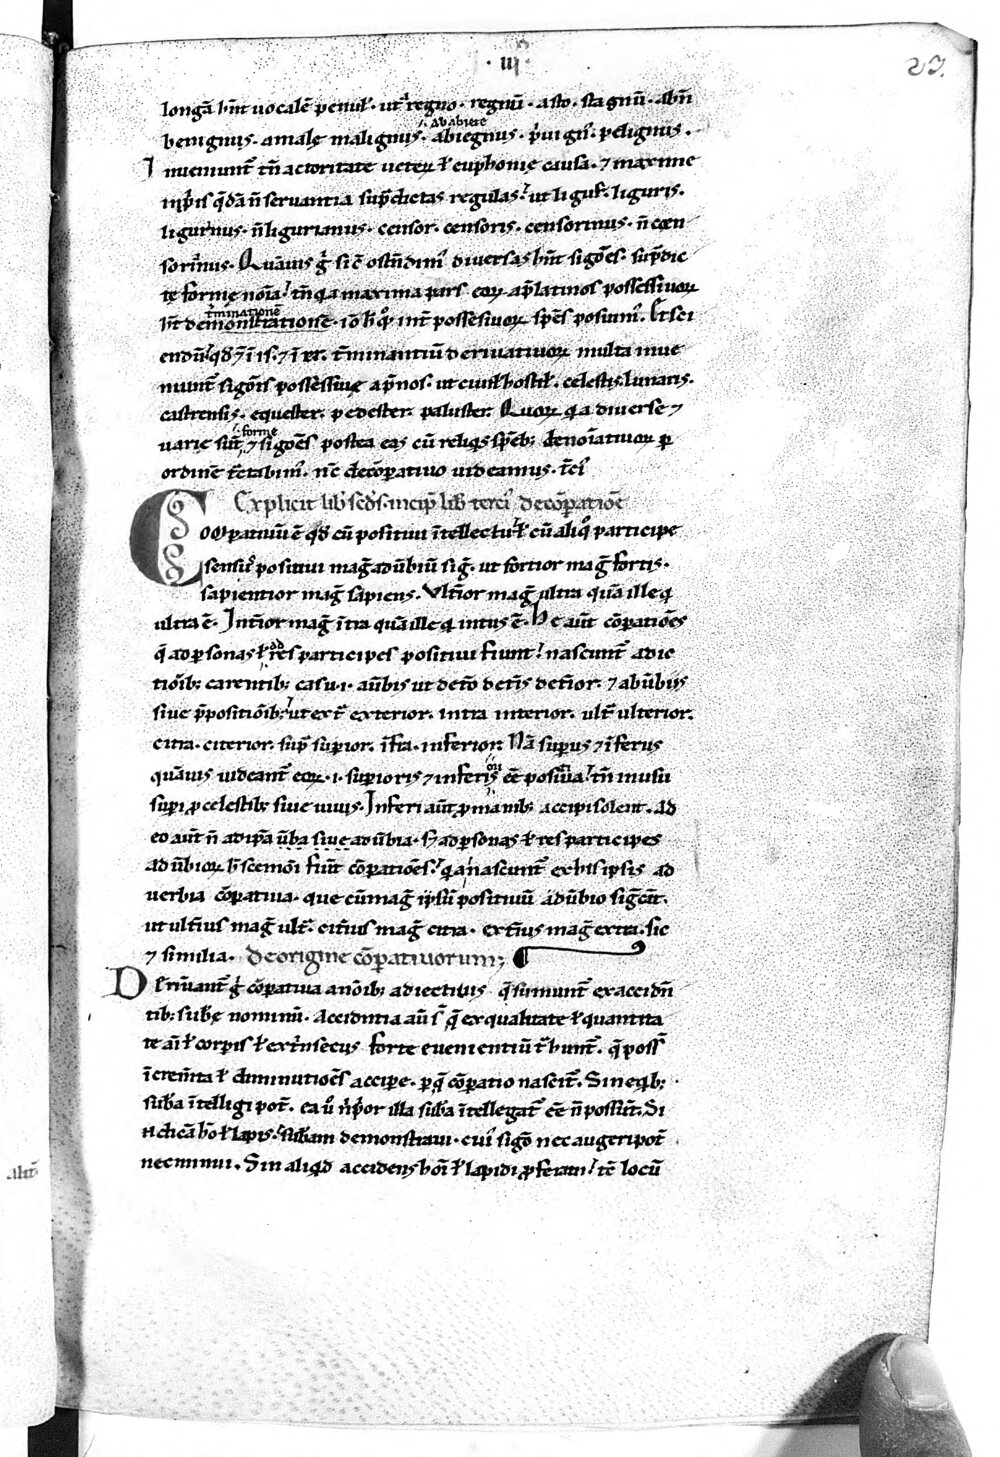 · III ·
23.
longā hn̄t uocalē penul̄. ut͛ regno. regnū. asto. stagnū. ab n̄
·/· ab abiete
benignus. amalę malignus. abiegnus. p̄ui gn̄. pelignus.
Inueniunt͛ tn̄ actoritate ueteꝝ ł euphonię causa. ⁊ maxime
inp̄is q̄dā n̄ seruantia sup̄dictas regulas. ut ligur͛. liguris.
ligurinus. n̄ ligurianus. censor. censoris. censorinus. n̄ cęn
sorīnus. Quāuis g̊ sic̄ ostn̄dim͛ diuersas hn̄t sigōēs. sup̄dic
tę formę noīa. tn̄ q̇a maxima pars eoꝝ ap̄ latinos possessiuoꝝ
t̄minationē
hn̄t demonstrationē. iō h̄ q̊ int͛ possesiuoꝝ spēs posium͛. Et sci
endū qd̄ ⁊ ī is. ⁊ ī er. t̄minantiū deriuatiuoꝝ multa inue
niunt͛ sigōīs possessiuę ap̄ nos. ut ciuil̄ hostil̄. celestis. lunaris.
castrensis. equester. pedester. paluster. Quoꝝ q̇a diuerse ⁊
formę
uarię sūt, ⁊ sigōēs postea eas cū reliq̇s sp̄eb; denoīatiuoꝝ ꝑ
ordinē t͛ctabim͛. n̄c decōparatiuo uideamus. t͛ci͛
Explicit lib͛ sc̄ds. incip̄ lib͛ tercī de cōꝑatiōe
Coōparatiuū ē qd̄ cū positiui ītellectu ł cū aliq̊ participe
sensu͛ positiui maḡ adūbiū sig͛. ut fortior maḡ fortis.
sapientior maḡ sapiens. Ult͛ior maḡ ultra quā ille q̇
ultra ē. Int͛ior maḡ īt͛a quā ille q̇ intus ē. He aūt cōꝑatiōēs
ad
q̄ ad ꝑsonas ł res participes positiui fiunt. nascunt͛ adie
tiōib; carentib; casu .i. aūbiis ut det͛o det͛is det͛ior. ⁊ ab ūbiis
siue p̄positiōib; ut ext͛ exterior. intra interior. ult͛ ulterior.
citra. citerior. sup͛ suꝑior. īfra. inferior. Nā suꝑus ⁊ īferus
quāuis uideant͛ eoꝝ .i. suꝑioris ⁊ inferis ēē positiua. tn̄ in usu
suꝑi ꝓ celestib; siue uiuis. Inferi aūt ꝓ manib; accipi solent. Ad
eo aūt n̄ ad ip̄a ūba siue adūbia. s; ad ꝑsonas ł res participes
adūbioꝝ h͛scemōi fiūt cōꝑatiōēs. q̇a nascunt͛ ex his ipsis ad
uerbia cōꝑatiua. que cū maḡ ip̄sū positiuū adūbio sig͛cāt.
ut ult͛ius maḡ ult͛. cit͛ius maḡ citra. ext͛ius maḡ extra. sic
⁊ similia. de origine cōꝑatiuorum;
Deriuant͛ g̊ cōꝑatiua a nōīb; adiectiuis q̄ sumunt͛ ex accidn̄
tib; sub͛ę nominū. Accidentia aū s͛ q̄ ex qualitate ł quantita
te aī ł corp̄is ł ext͛insecus forte euenientiū t͛hunt͛. q̄ poss͛
īcrem̄ta ł diminutiōēs accipe. ꝑ q̄ cōꝑatio nascit͛. Sine q̇b;
sub͛a ītelligi pot͛. ea u͛ n͛ p͛or illa sub͛a ītellegat͛ ēē n̄ possūt. Si
n̄ dicā hō ł lapis. sub͛am demonstraui. cui͛ sigō nec augeri pot͛
nec minui. Sin aliq̇d accidens hoī ł lapidi ꝓferam. tē locū